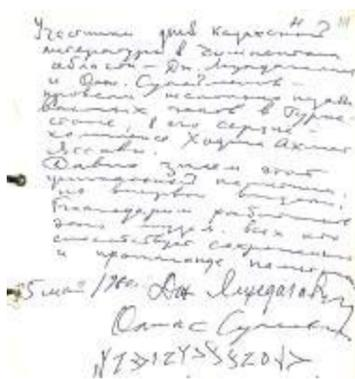 Участники дней казахской
литературы в Чимкентской
области - Дж. Мулдагалиев
и Олж. Сулейменов -
провели несколько
важных часов в Турке-
стане, в его сердце -
комплексе Ходжи Ахмета
Яссави.
Давно знаем этот
уникальный памятник,
но впервые
Благодарим работников
этого музея. всех кто
способствует сохранению
и пропаганде
5 мая /
Дж. Мулдагалиев
Олжас Сулейменов